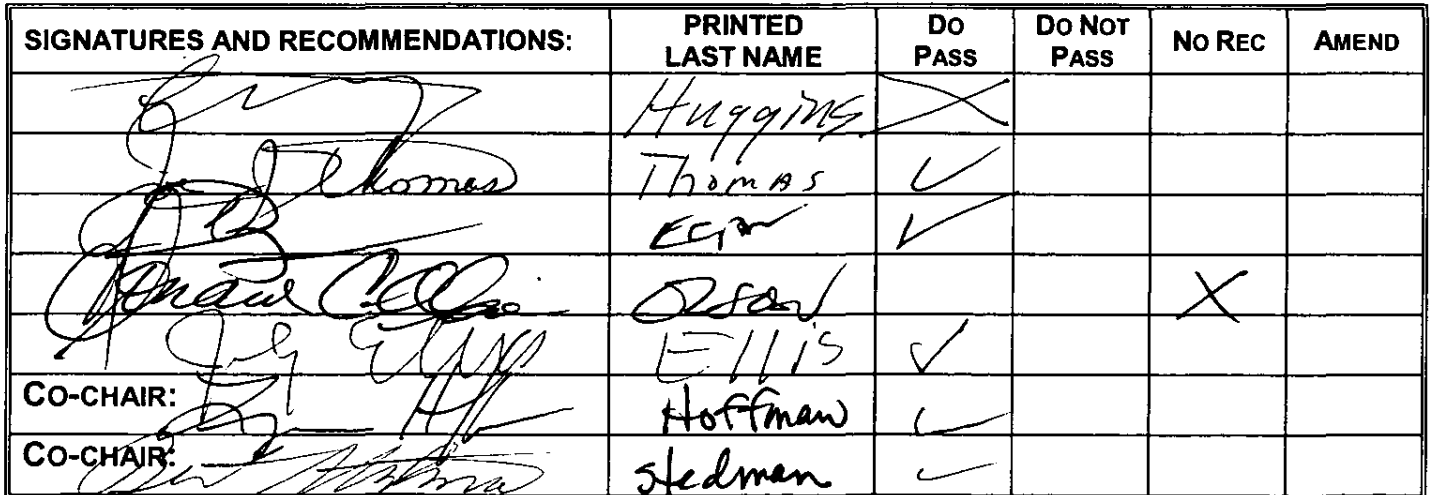 SIGNATURES AND RECOMMENDATIONS: PRINTED LAST NAME DO PASS DO NOT PASS NO REC AMEND
Huggins X
Thomas Thomas ✓
Egan ✓
Olson X
Ellis ✓
CO-CHAIR: Hoffman ✓
CO-CHAIR: Stedman ✓